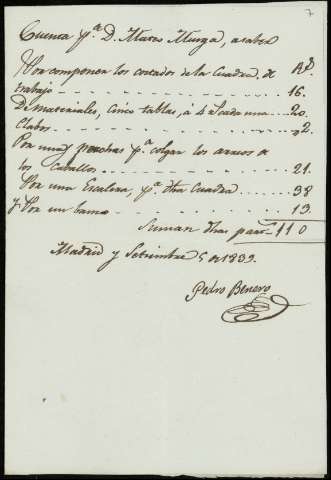 7
Cuenta pª D. Mateo Murga, a saber
Rs.
Por componer los costados de la Cuadra, de
trabajo 16.
De materiales, cinco tablas, à 4 rs cada una 20.
Clavos 2.
Por una perchas pª colgar los arreos de
los caballos 21.
Por una Escalera, pª dha Cuadra 38
y Por un banco 13.
Suman dhas part.s 110
Madrid y Setiembre 5 de 1832.
Pedro Benero